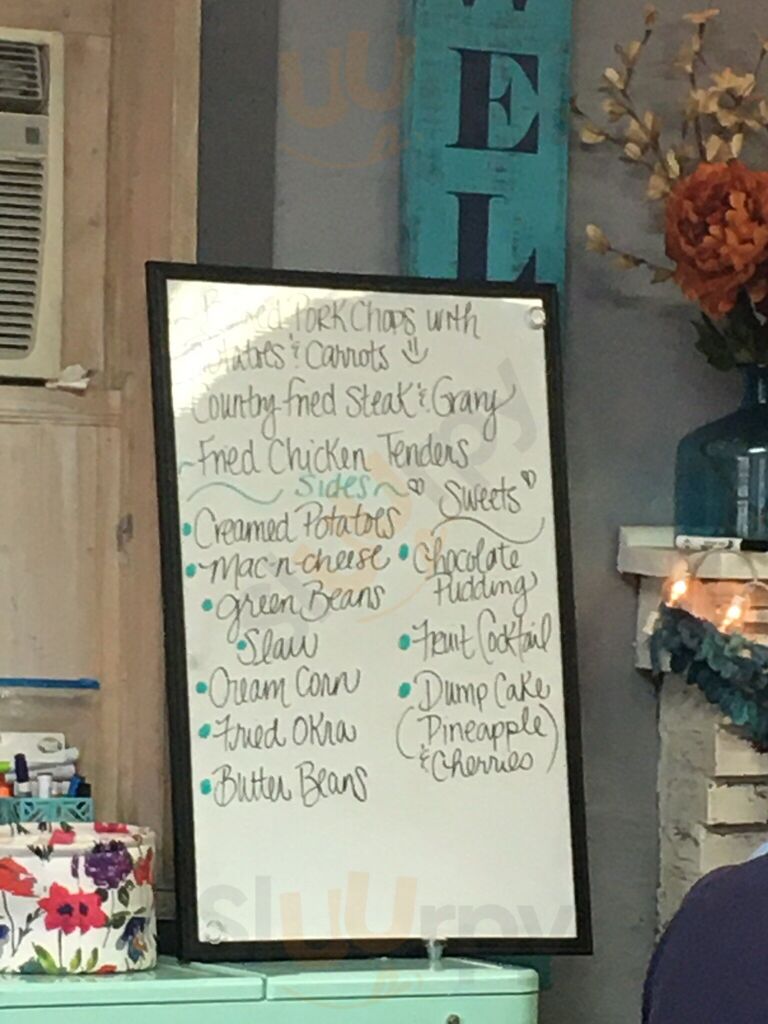 WEL
Pork Chops with
& Carrots
Country Fried Steak & Gravy
Fried Chicken Tenders
Sides
Sweets
Creamed Potatoes
Mac-n-cheese
Green Beans
Slaw
Cream Corn
Fried Okra
Butter Beans
Chocolate
Pudding
Fruit Cocktail
Dump Cake
(Pineapple
& Cherries)
sluurpy